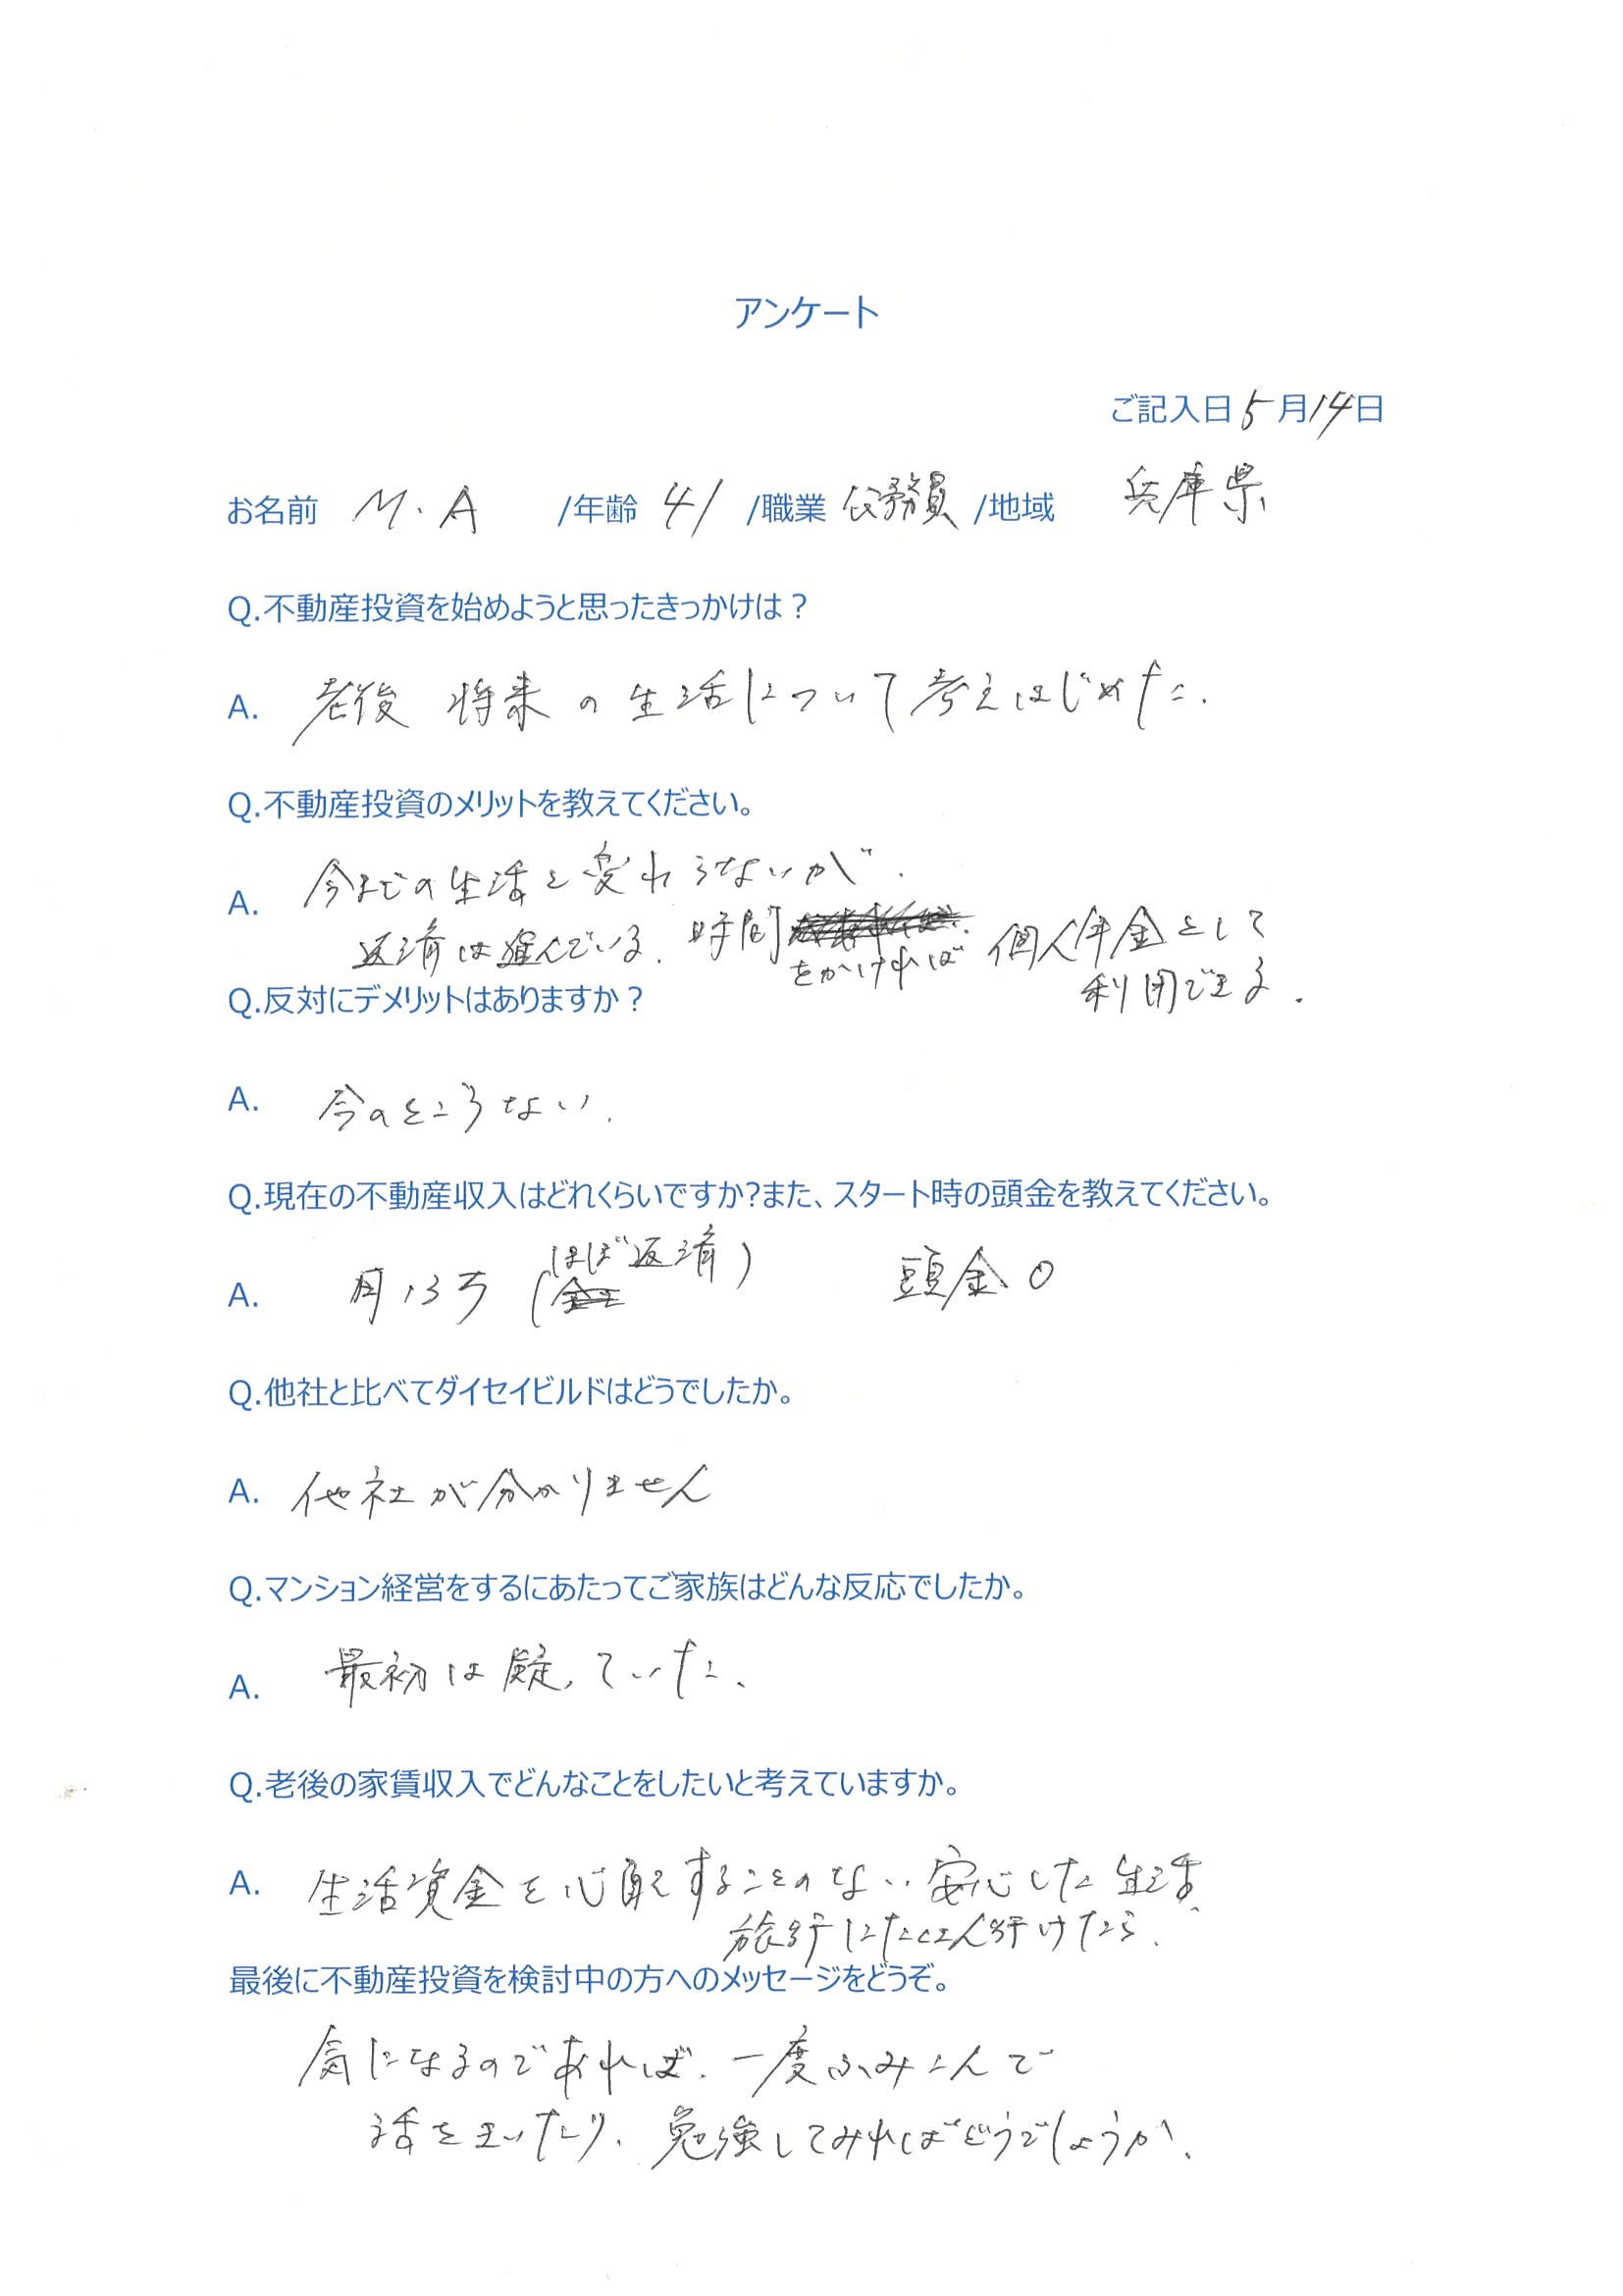 アンケート
ご記入日 5月14日
お名前 M.A /年齢 41 /職業 公務員 /地域 兵庫県
Q.不動産投資を始めようと思ったきっかけは？
A. 老後 将来の生活について考えはじめた.
Q.不動産投資のメリットを教えてください。
A. 今までの生活と変わらないが、
返済は進んでいる. 時間をかければ 個人年金として
利用できる.
Q.反対にデメリットはありますか？
A. 今のところない.
Q.現在の不動産収入はどれくらいですか?また、スタート時の頭金を教えてください。
A. 月13万 (ほぼ返済) 頭金0
Q.他社と比べてダイセイビルドはどうでしたか。
A. 他社が分かりません
Q.マンション経営をするにあたってご家族はどんな反応でしたか。
A. 最初は疑っていた、
Q.老後の家賃収入でどんなことをしたいと考えていますか。
A. 生活資金を心配することのない、安心した生活、
旅行にたくさん行けたら、
最後に不動産投資を検討中の方へのメッセージをどうぞ。
気になるのであれば、一度ふみこんで
話をきいたり、勉強してみればどうでしょうか、